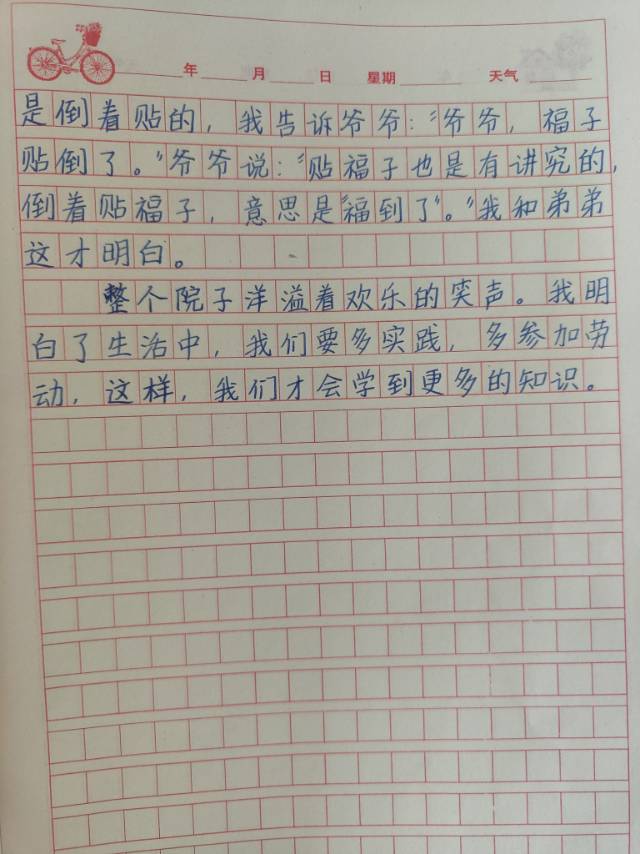 年 月 日 星期 天气
是倒着贴的，我告诉爷爷：“爷爷，福子
贴倒了。”爷爷说：“贴福子也是有讲究的，
倒着贴福子，意思是“福到了”。”我和弟弟
这才明白。
整个院子洋溢着欢乐的笑声。我明
白了生活中，我们要多实践，多参加劳
动，这样，我们才会学到更多的知识。